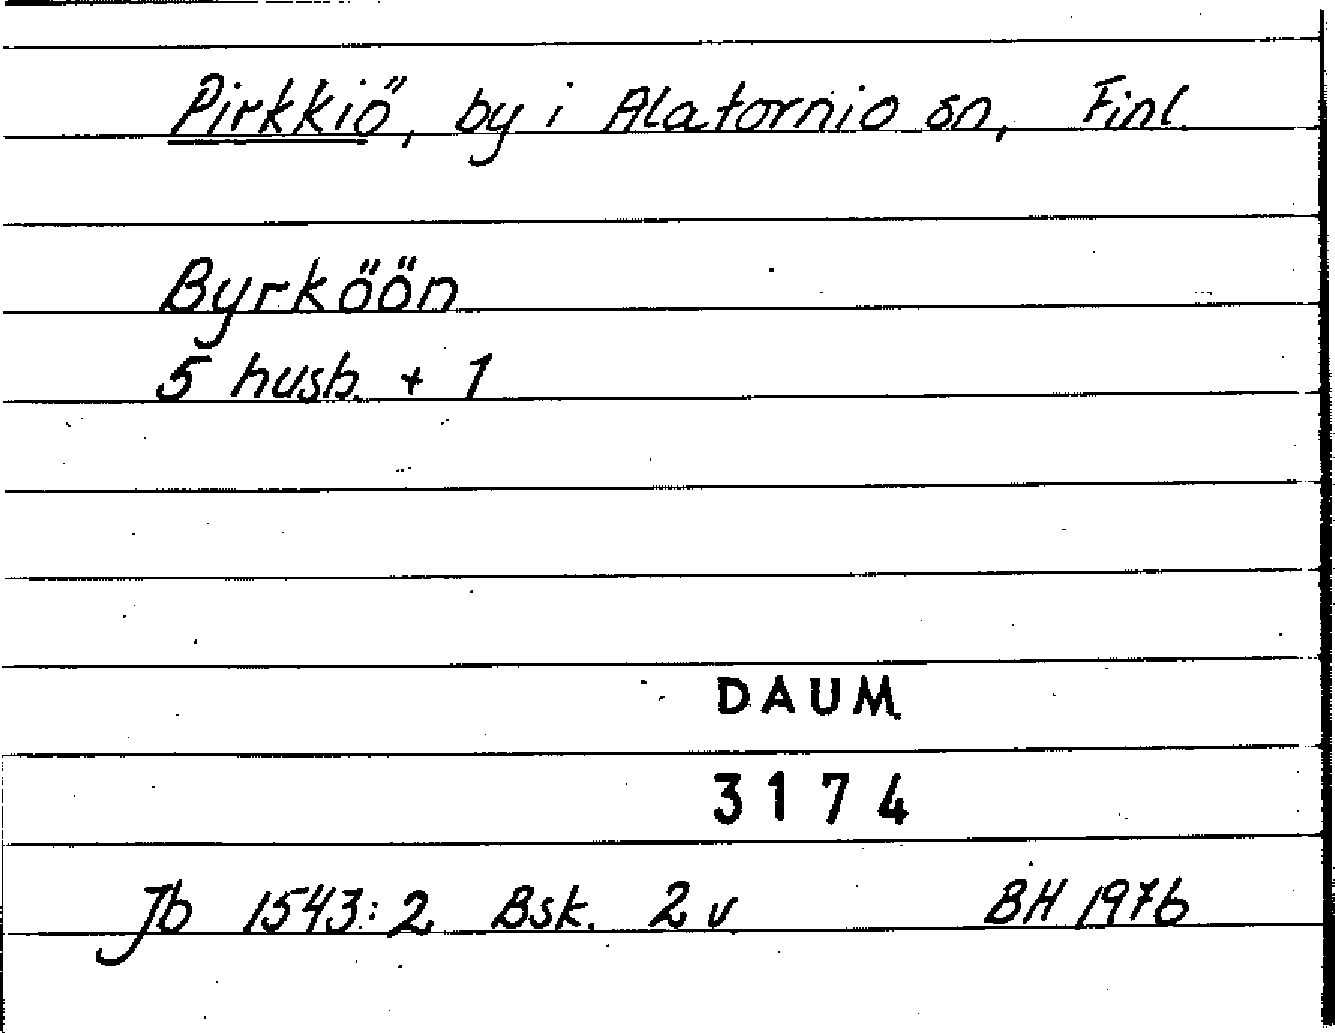 Pirkkiö, by i Alatornio sn, Finl.
Byrköön
5 husb. + 1
DAUM
3174
Jb 1543:2 Bsk. 2v BH 1976